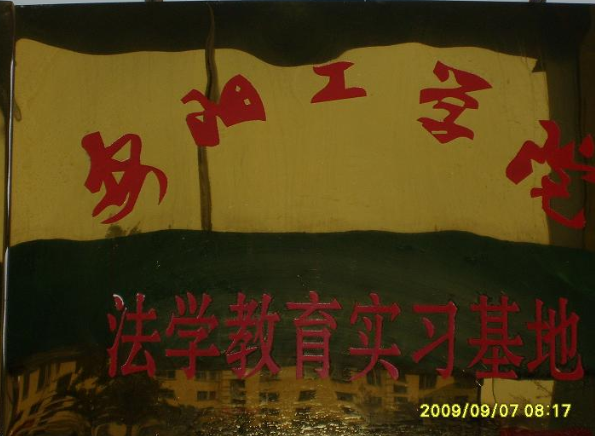 安阳工学院
法学教育实习基地
2009/09/07 08:17